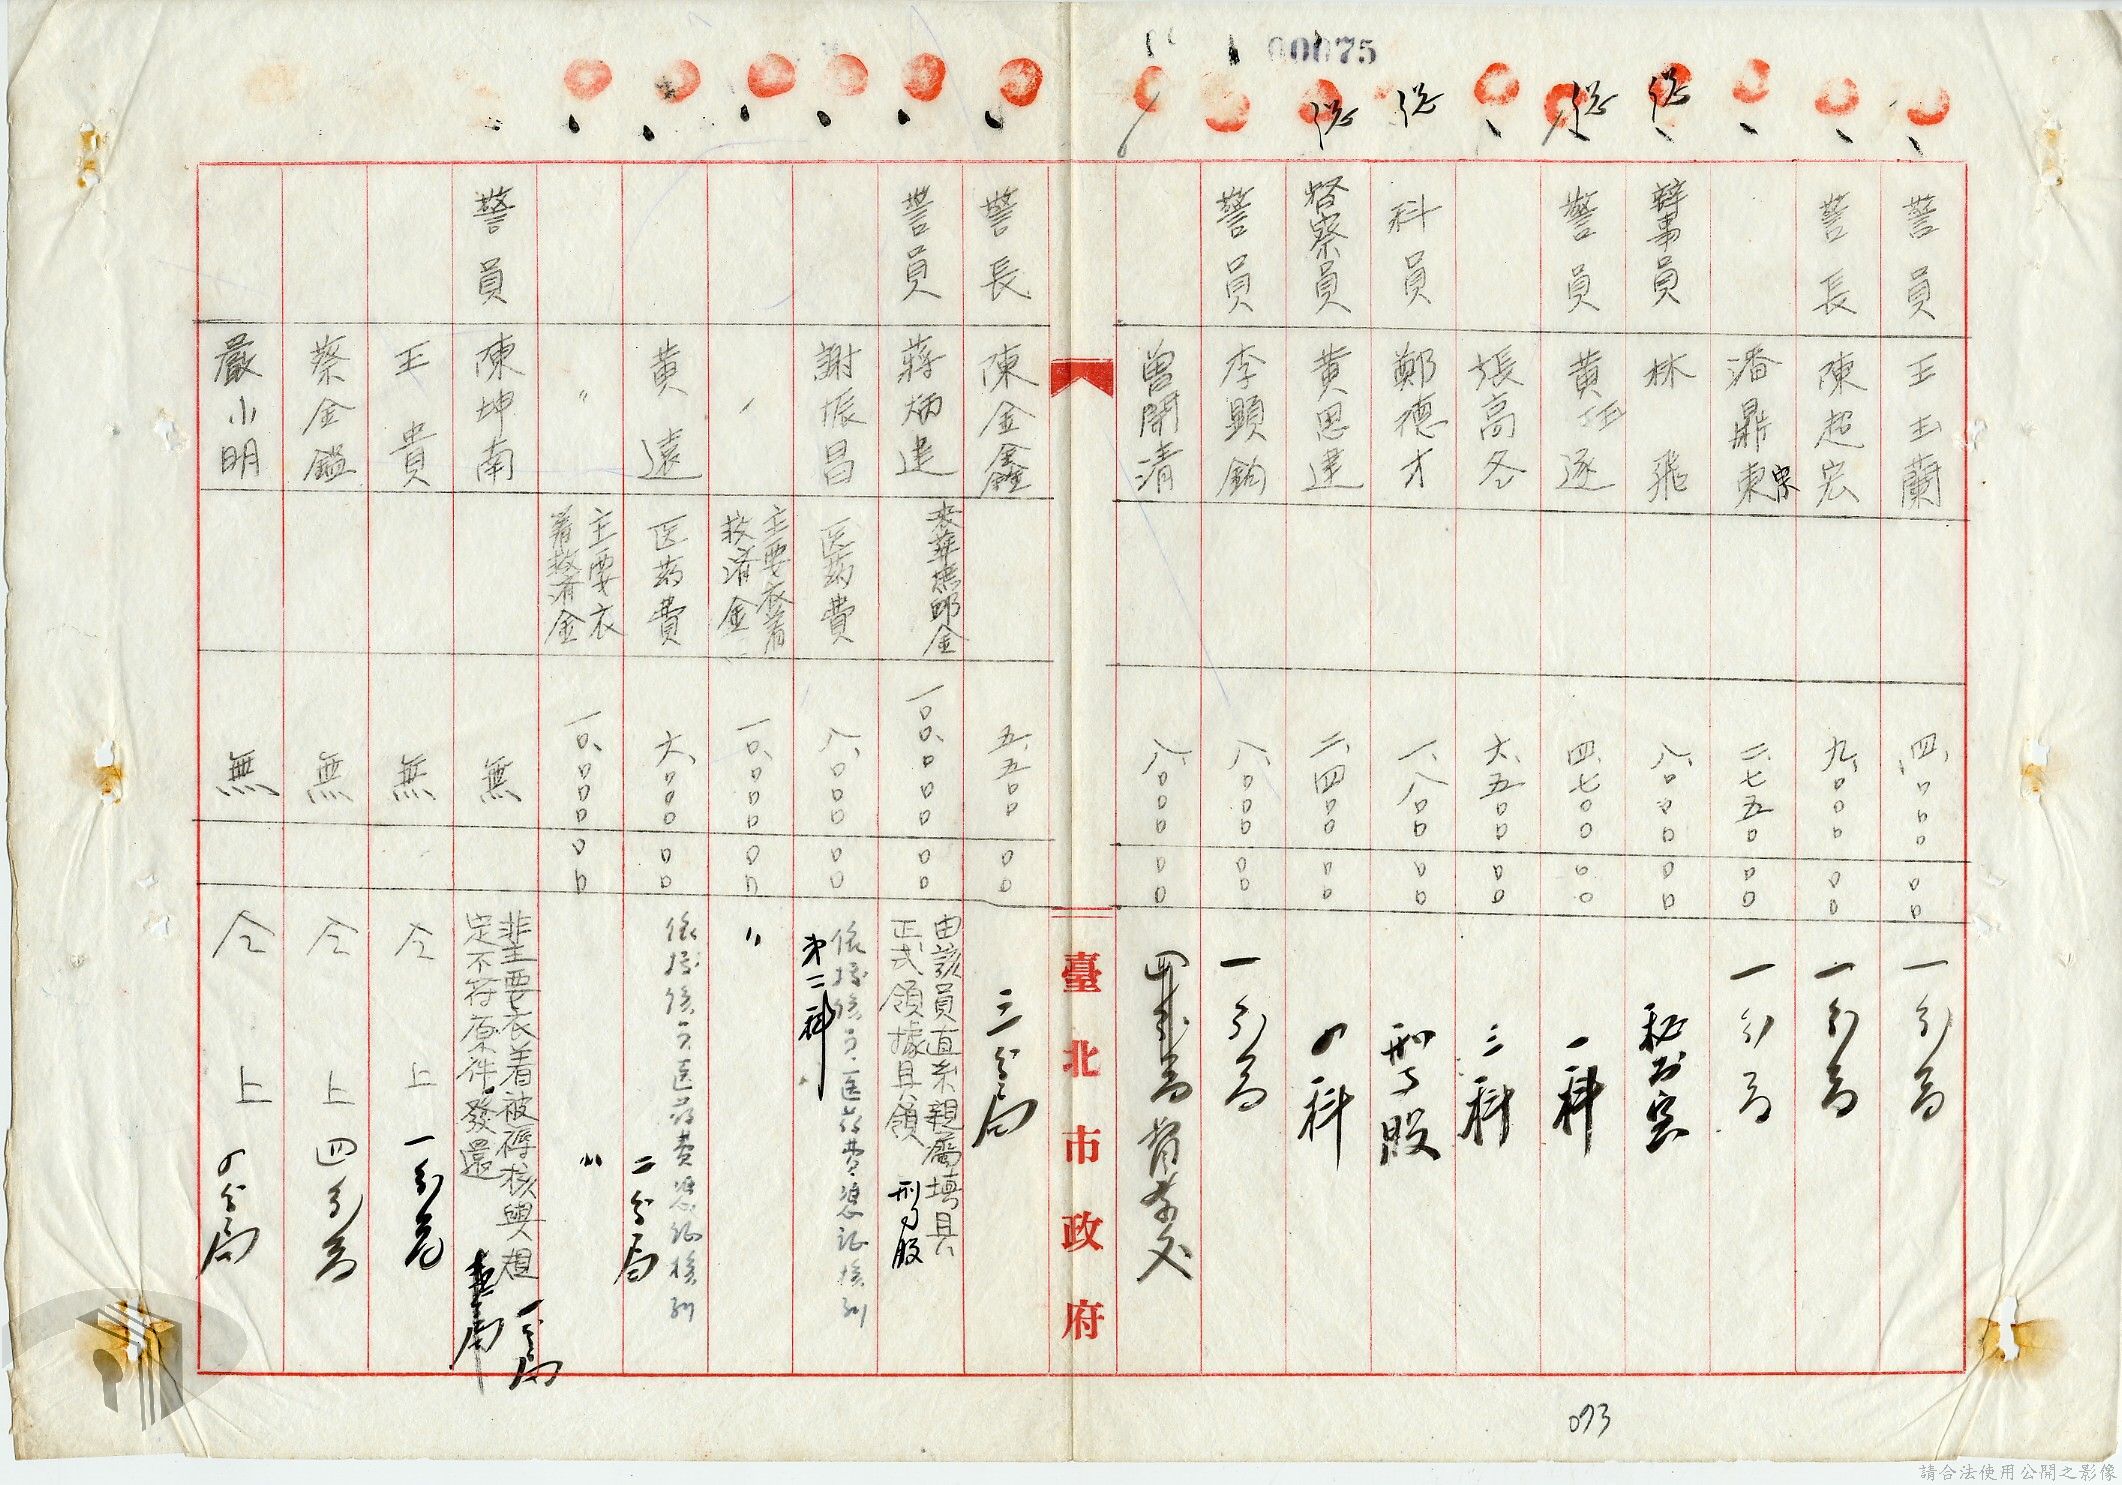 00075
警員 王玉蘭 四、〇〇〇 〇〇 一分局
警長 陳超宏 九、〇〇〇 〇〇 一分局
潘鼎東 二、七五〇 〇〇 一分局
辦事員 林飛 八、〇〇〇 〇〇 秘書室
警員 黃伍逐 四、七〇〇 〇〇 一科
張高冬 六、五〇〇 〇〇 三科
科員 鄭德才 一、八〇〇 〇〇 刑事股
督察員 黃思達 二、四〇〇 〇〇 四科
警員 李顯鈞 八、〇〇〇 〇〇 一分局
曾開清 八、〇〇〇 〇〇 四分局
臺北市政府
警長 陳金鑫 五、五〇〇 〇〇 三分局
警員 蔣炳進 喪葬撫卹金 一〇〇、〇〇〇 〇〇 由該員直系親屬填具正式領據具領 刑事股
謝振昌 医葯費 八、〇〇〇 〇〇 依據後方医葯費憑証核列 第二科
〃 主要衣着救濟金 一〇、〇〇〇 〇〇 〃
黃遠 医葯費 六、〇〇〇 〇〇 依據後方医葯費憑証核列 二分局
〃 主要衣着救濟金 一〇、〇〇〇 〇〇 〃
警員 陳坤南 無 非主要衣着被褥核與規定不符原件發還 一分局
王貴 無 仝上 一分局
蔡金鑑 無 仝上 四分局
嚴小明 無 仝上 四分局
073
請合法使用公開之影像